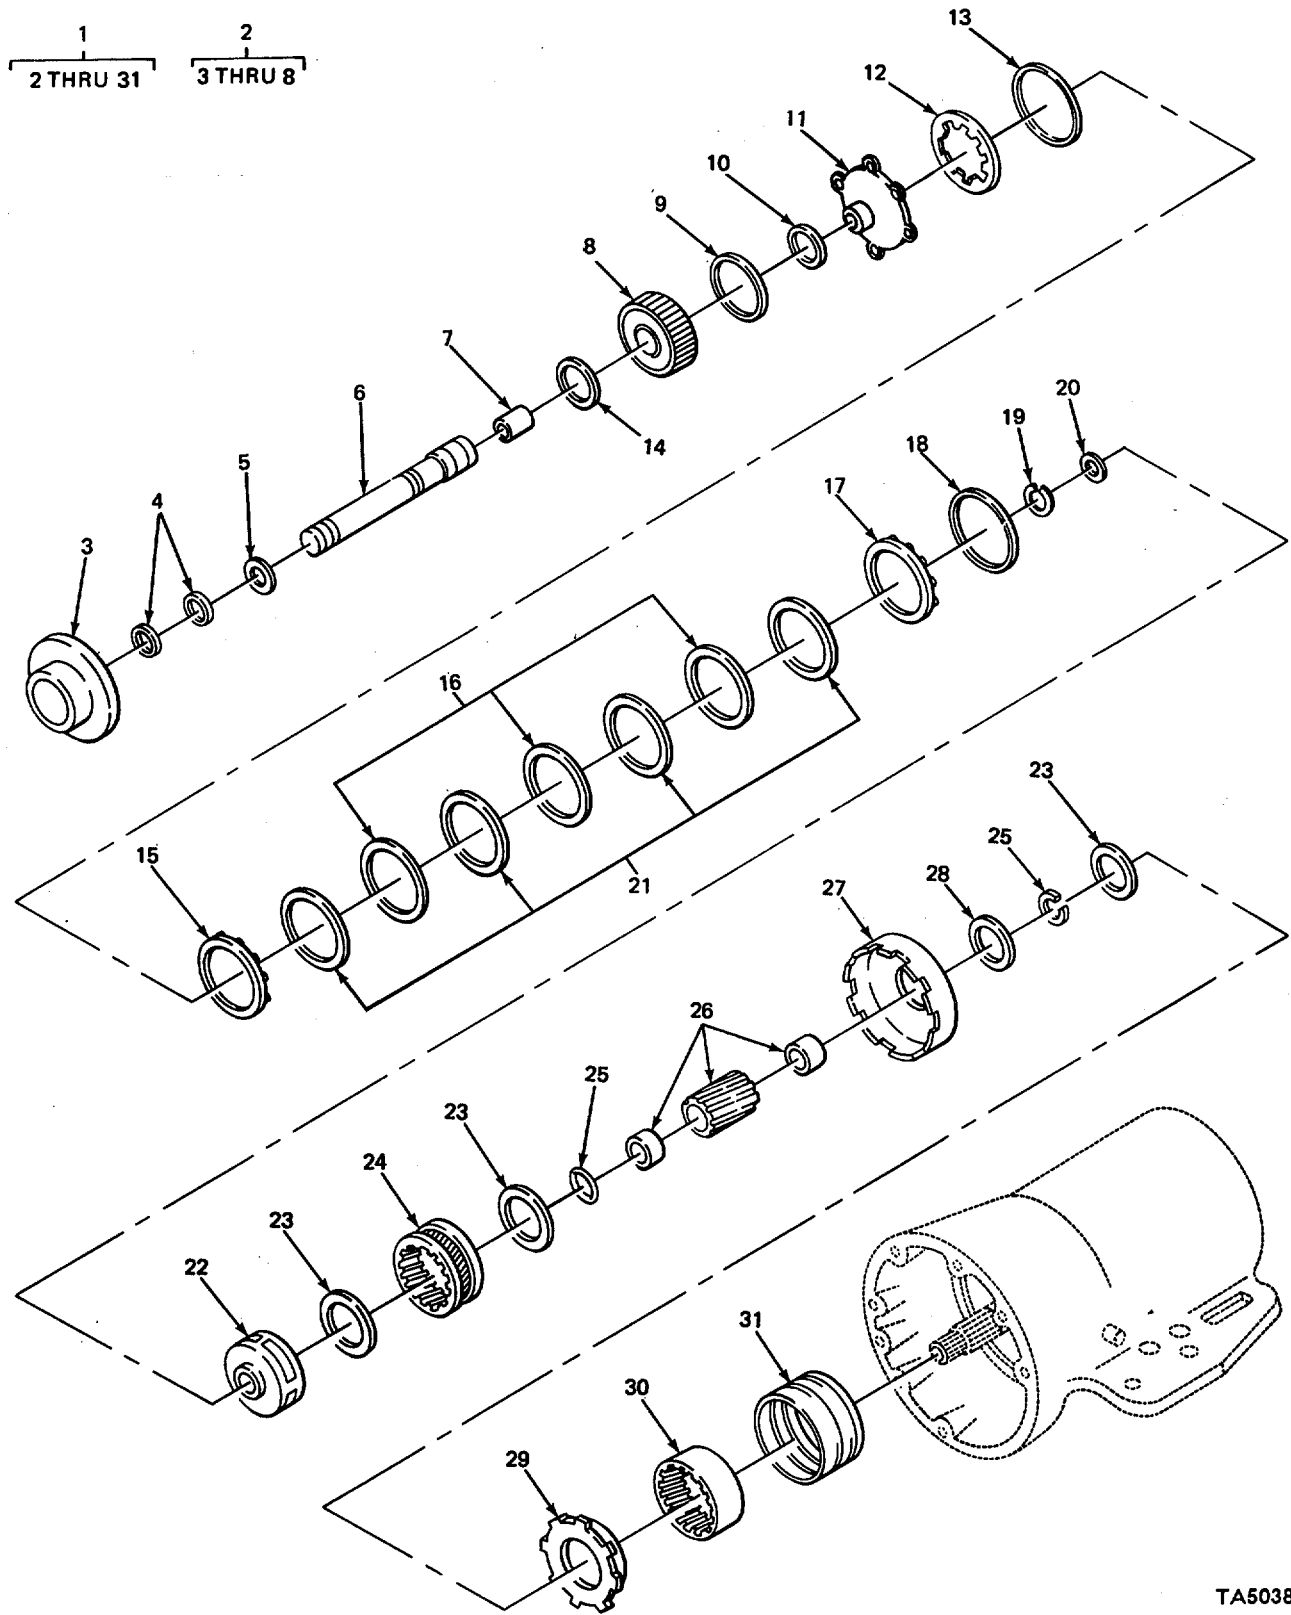 1
2 THRU 31
2
3 THRU 8
13
12
11
10
9
8
7
14
6
5
4
3
20
19
18
17
16
21
15
23
25
28
27
26
25
23
24
23
22
31
30
29
TA5038